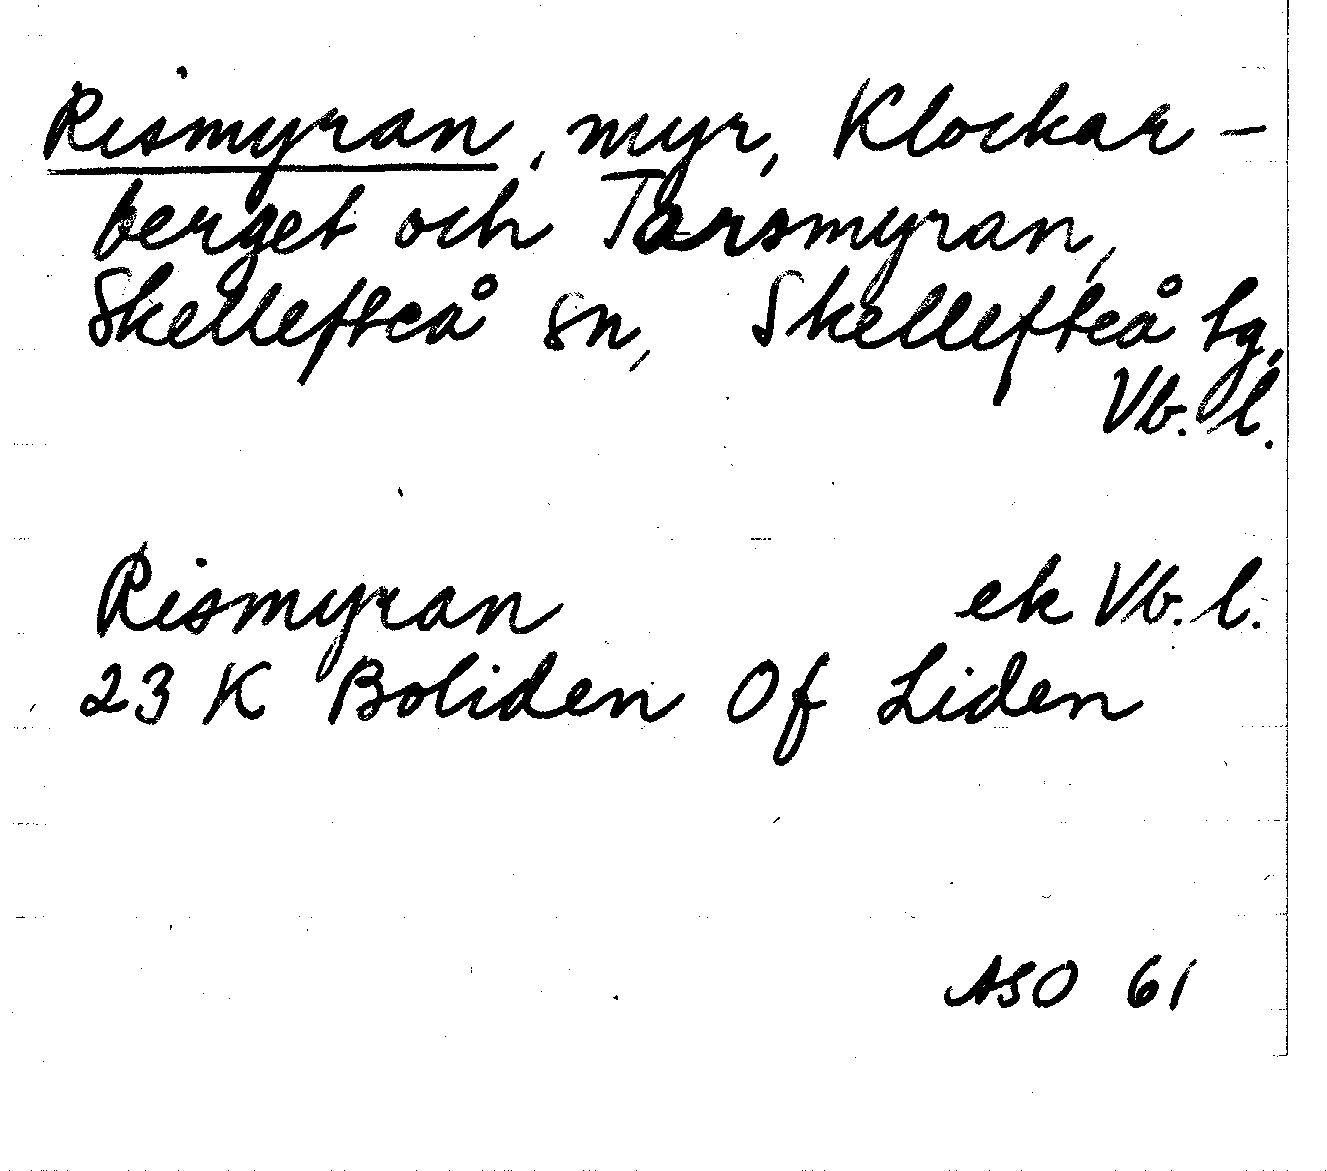 Rismyran, myr, Klockar-
berget och Tarsmyran,
Skellefteå sn, Skellefteå tg,
Vb. l.
Rismyran ek Vb. l.
23 K Boliden Of Liden
ASO 61